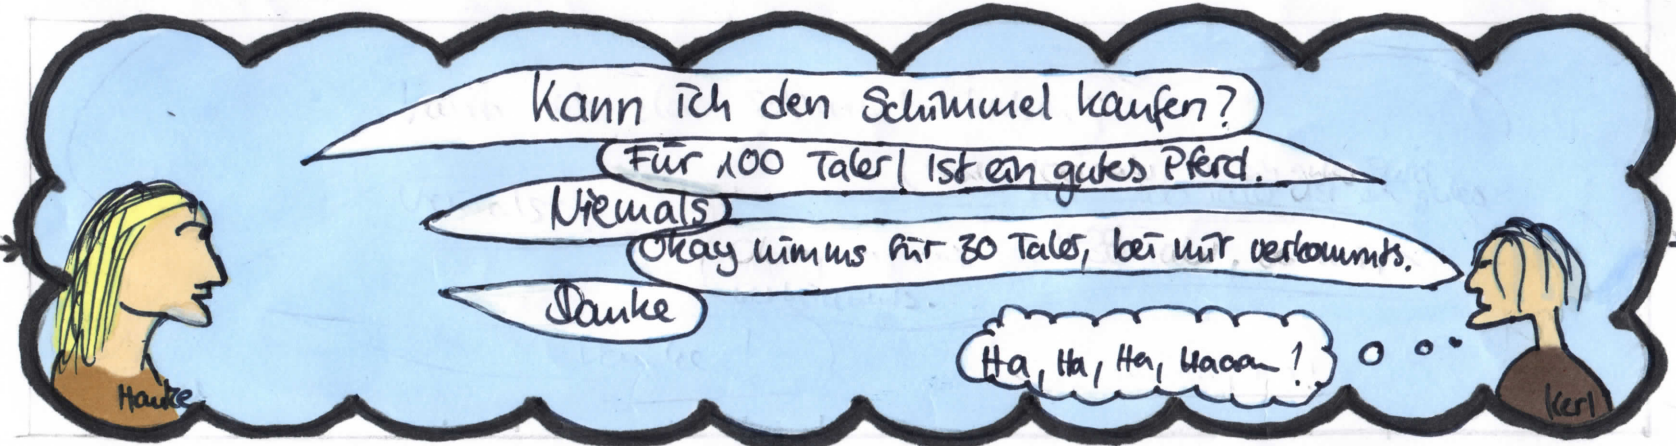 Kann ich den Schimmel kaufen?
Für 100 Taler! Ist ein gutes Pferd.
Niemals
Okay nimms für 30 Taler, bei mir verkommts.
Danke
Ha, Ha, Ha, Haaaa!
Hauke
Kerl